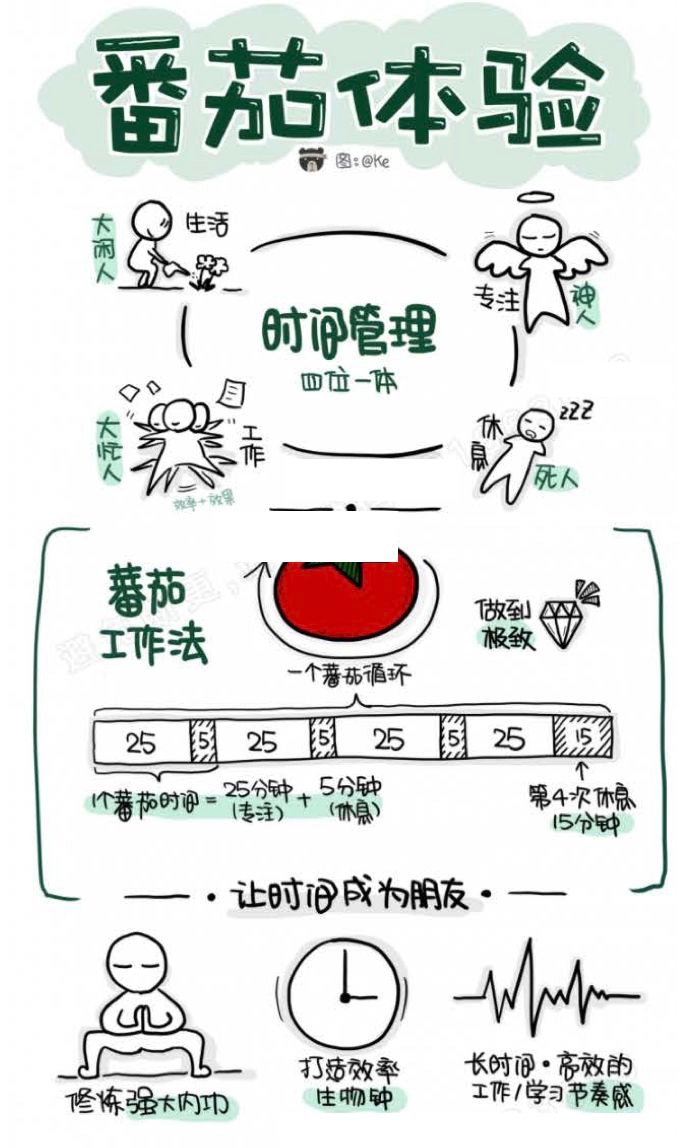 番茄体验
图:@Ke
大闲人
生活
专注
神人
时间管理
四位一体
大忙人
工作
效率+效果
休息
zzz
死人
蕃茄
工作法
做到
极致
一个蕃茄循环
25 5 25 5 25 5 25 15
1个蕃茄时间=25分钟(专注)+5分钟(休息)
第4次休息
15分钟
·让时间成为朋友·
修炼强大内功
打造效率
生物钟
长时间·高效的
工作/学习节奏感